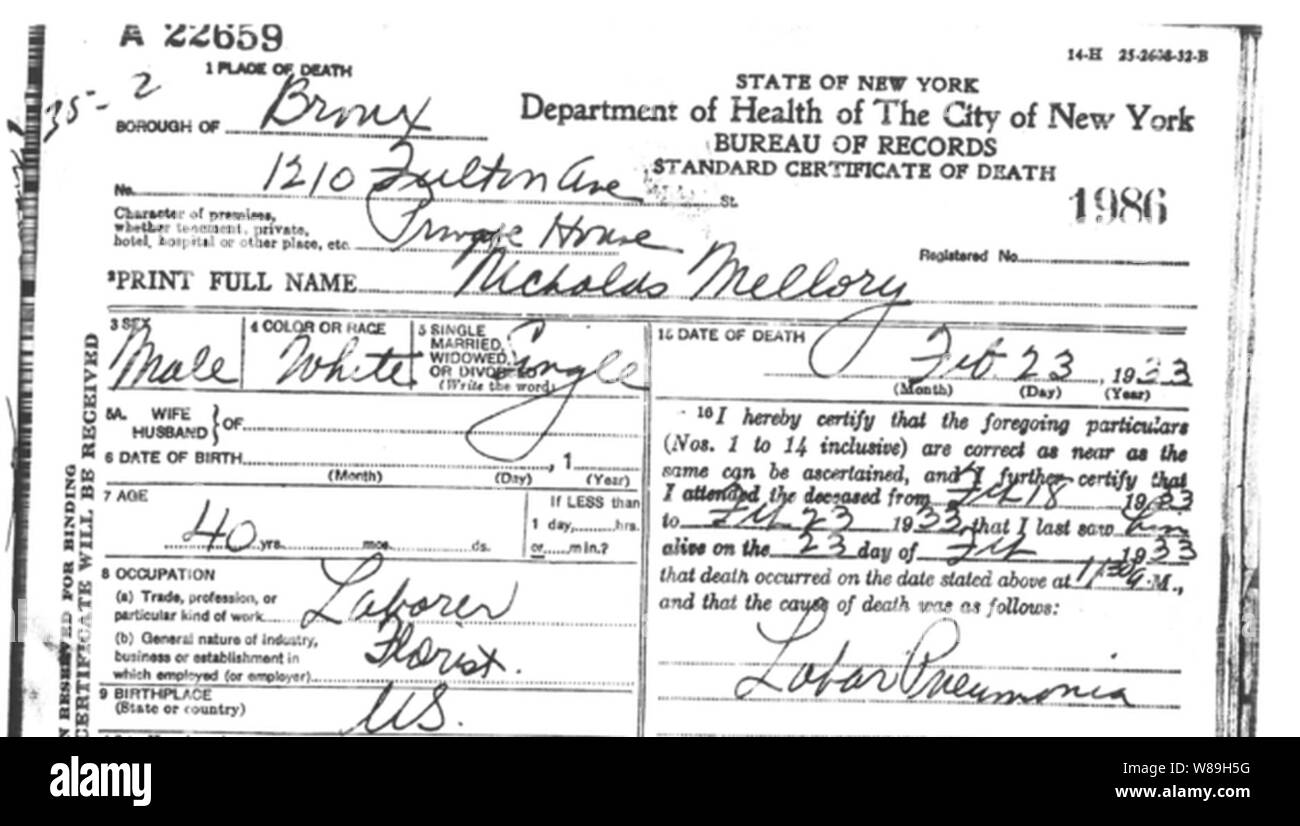 A 22659
14-H 25-2608-32-B
1 PLACE OF DEATH
STATE OF NEW YORK
35- 2
Department of Health of The City of New York
BOROUGH OF Bronx
BUREAU OF RECORDS
STANDARD CERTIFICATE OF DEATH
No. 1210 Fulton Ave St.
1986
Character of premises,
whether tenement, private,
hotel, hospital or other place, etc. Private House
Registered No.
2 PRINT FULL NAME Nicholas Mellory
3 SEX
Male
4 COLOR OR RACE
White
5 SINGLE
MARRIED,
WIDOWED,
OR DIVORCED
(Write the word)
Single
5A. WIFE
HUSBAND } OF
6 DATE OF BIRTH , 1
(Month) (Day) (Year)
7 AGE
40 yrs. mos. ds.
If LESS than
1 day, hrs.
or min.?
8 OCCUPATION
(a) Trade, profession, or
particular kind of work Laborer
(b) General nature of industry,
business or establishment in
which employed (or employer) Florist.
9 BIRTHPLACE
(State or country) US.
15 DATE OF DEATH
Feb. 23, 1933
(Month) (Day) (Year)
16 I hereby certify that the foregoing particulars
(Nos. 1 to 14 inclusive) are correct as near as the
same can be ascertained, and I further certify that
I attended the deceased from Feb 18 1933
to Feb 23 1933, that I last saw him
alive on the 23 day of Feb 1933
that death occurred on the date stated above at 11:30 A.M.,
and that the cause of death was as follows:
Lobar Pneumonia
N RESERVED FOR BINDING
CERTIFICATE WILL BE RECEIVED
alamy
Image ID: W89H5G
www.alamy.com